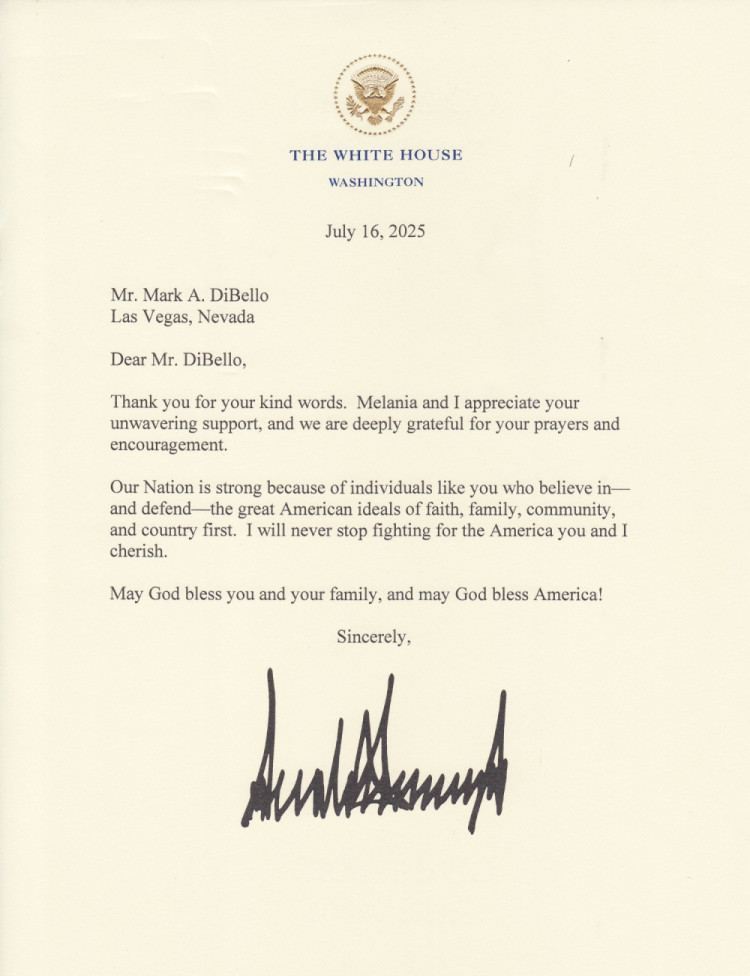 THE WHITE HOUSE
WASHINGTON
July 16, 2025
Mr. Mark A. DiBello
Las Vegas, Nevada
Dear Mr. DiBello,
Thank you for your kind words.  Melania and I appreciate your
unwavering support, and we are deeply grateful for your prayers and
encouragement.
Our Nation is strong because of individuals like you who believe in—
and defend—the great American ideals of faith, family, community,
and country first.  I will never stop fighting for the America you and I
cherish.
May God bless you and your family, and may God bless America!
Sincerely,